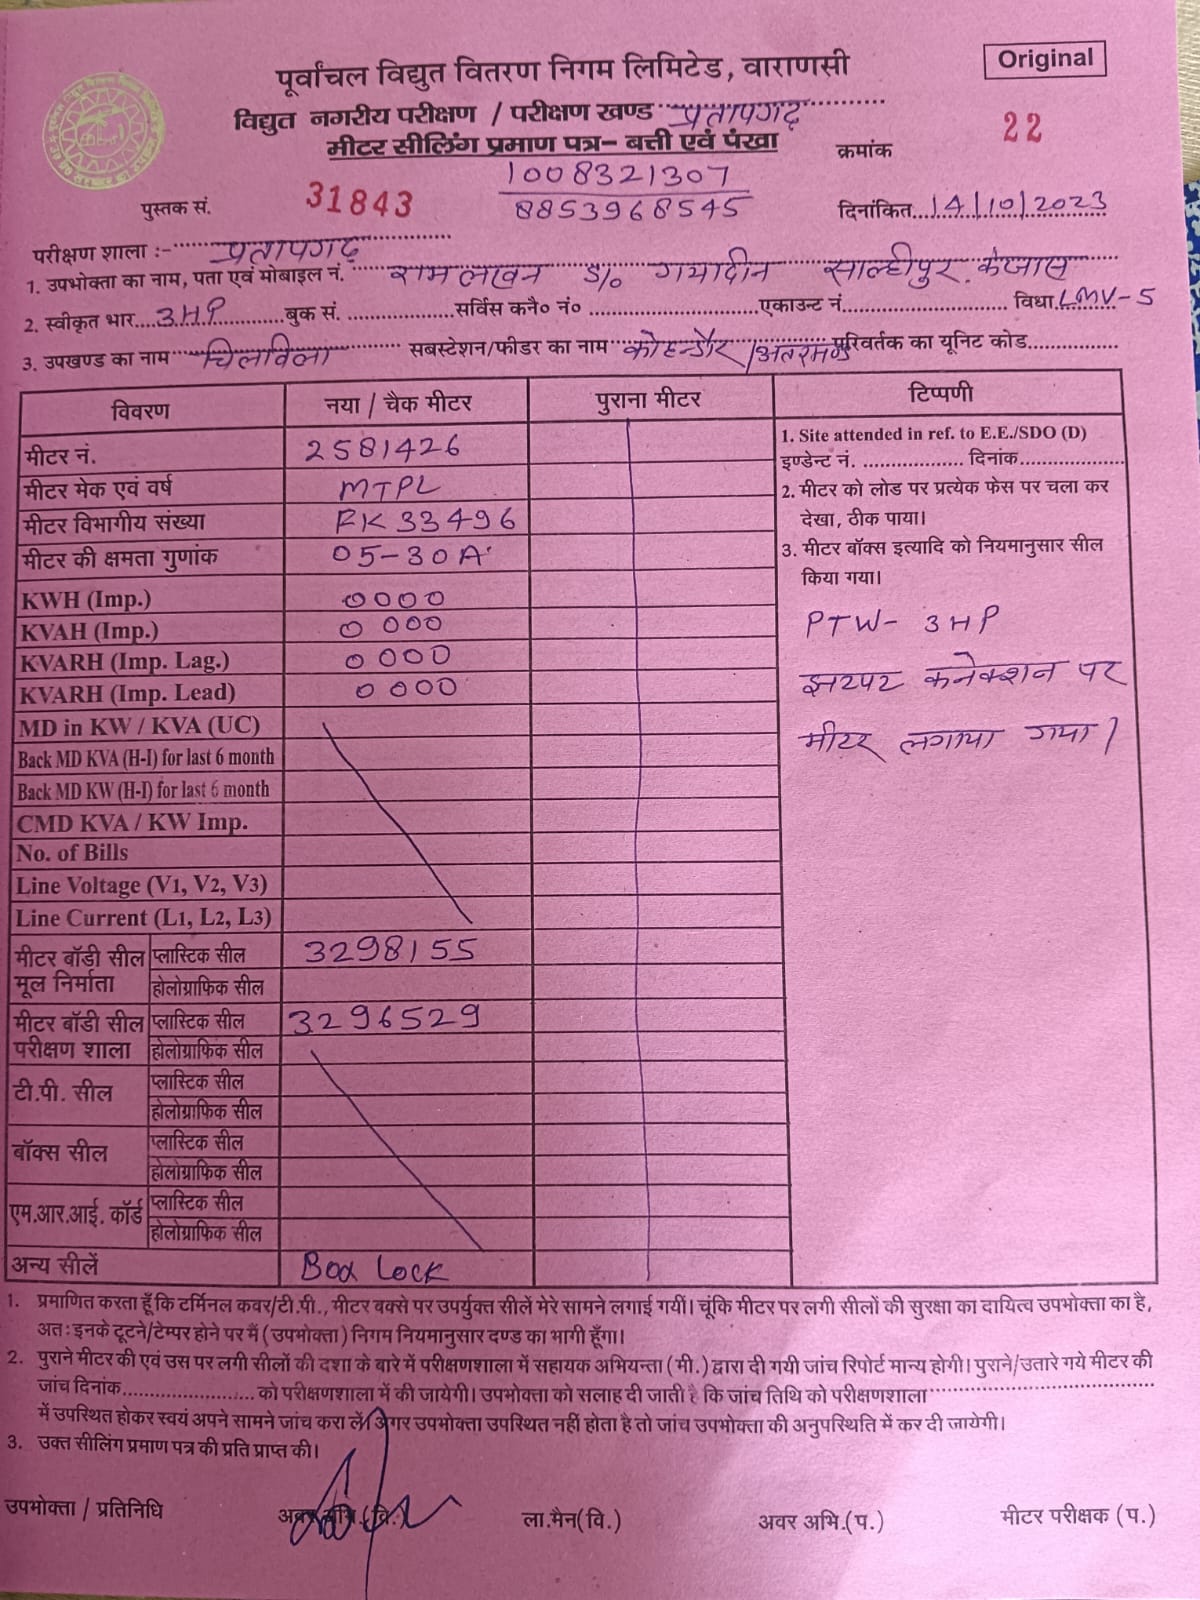 Original
पूर्वांचल विद्युत वितरण निगम लिमिटेड, वाराणसी
विद्युत नगरीय परीक्षण / परीक्षण खण्ड प्रतापगढ़
मीटर सीलिंग प्रमाण पत्र- बत्ती एवं पंखा
क्रमांक 22
1008321307
पुस्तक सं. 31843 8853968545 दिनांकित 14/10/2023
परीक्षण शाला :- प्रतापगढ़
1. उपभोक्ता का नाम, पता एवं मोबाइल नं. रामलखन S/o गयादीन साल्हीपुर
2. स्वीकृत भार....3HP....बुक सं. ....सर्विस कनै० नं० ....एकाउन्ट नं.... विधा LMV-5
3. उपखण्ड का नाम चिलबिला सबस्टेशन/फीडर का नाम कोहन्डौर / परिवर्तक का यूनिट कोड....
विवरण नया / चैक मीटर पुराना मीटर टिप्पणी
मीटर नं. 2581426
मीटर मेक एवं वर्ष MTPL
मीटर विभागीय संख्या RK33496
मीटर की क्षमता गुणांक 05-30A
KWH (Imp.) 0000
KVAH (Imp.) 0000
KVARH (Imp. Lag.) 0000
KVARH (Imp. Lead) 0000
MD in KW / KVA (UC)
Back MD KVA (H-I) for last 6 month
Back MD KW (H-I) for last 6 month
CMD KVA / KW Imp.
No. of Bills
Line Voltage (V1, V2, V3)
Line Current (L1, L2, L3)
मीटर बॉडी सील मूल निर्माता प्लास्टिक सील 3298155
होलोग्राफिक सील
मीटर बॉडी सील परीक्षण शाला प्लास्टिक सील 3296529
होलोग्राफिक सील
टी.पी. सील प्लास्टिक सील
होलोग्राफिक सील
बॉक्स सील प्लास्टिक सील
होलोग्राफिक सील
एम.आर.आई. कॉर्ड प्लास्टिक सील
होलोग्राफिक सील
अन्य सीलें Box Lock
1. Site attended in ref. to E.E./SDO (D)
इण्डेन्ट नं. .................. दिनांक..................
2. मीटर को लोड पर प्रत्येक फेस पर चला कर
देखा, ठीक पाया।
3. मीटर बॉक्स इत्यादि को नियमानुसार सील
किया गया।
PTW- 3HP
झटपट कनेक्शन पर
मीटर लगाया गया।
1. प्रमाणित करता हूँ कि टर्मिनल कवर/टी.पी., मीटर बक्से पर उपर्युक्त सीलें मेरे सामने लगाई गयीं। चूंकि मीटर पर लगी सीलों की सुरक्षा का दायित्व उपभोक्ता का है,
अतः इनके टूटने/टेम्पर होने पर मैं (उपभोक्ता) निगम नियमानुसार दण्ड का भागी हूँगा।
2. पुराने मीटर की एवं उस पर लगी सीलों की दशा के बारे में परीक्षणशाला में सहायक अभियन्ता (मी.) द्वारा दी गयी जांच रिपोर्ट मान्य होगी। पुराने/उतारे गये मीटर की
जांच दिनांक......................को परीक्षणशाला में की जायेगी। उपभोक्ता को सलाह दी जाती है कि जांच तिथि को परीक्षणशाला......................
में उपस्थित होकर स्वयं अपने सामने जांच करा लें। अगर उपभोक्ता उपस्थित नहीं होता है तो जांच उपभोक्ता की अनुपस्थिति में कर दी जायेगी।
3. उक्त सीलिंग प्रमाण पत्र की प्रति प्राप्त की।
उपभोक्ता / प्रतिनिधि अवर अभि.(वि.) ला.मैन(वि.) अवर अभि.(प.) मीटर परीक्षक (प.)